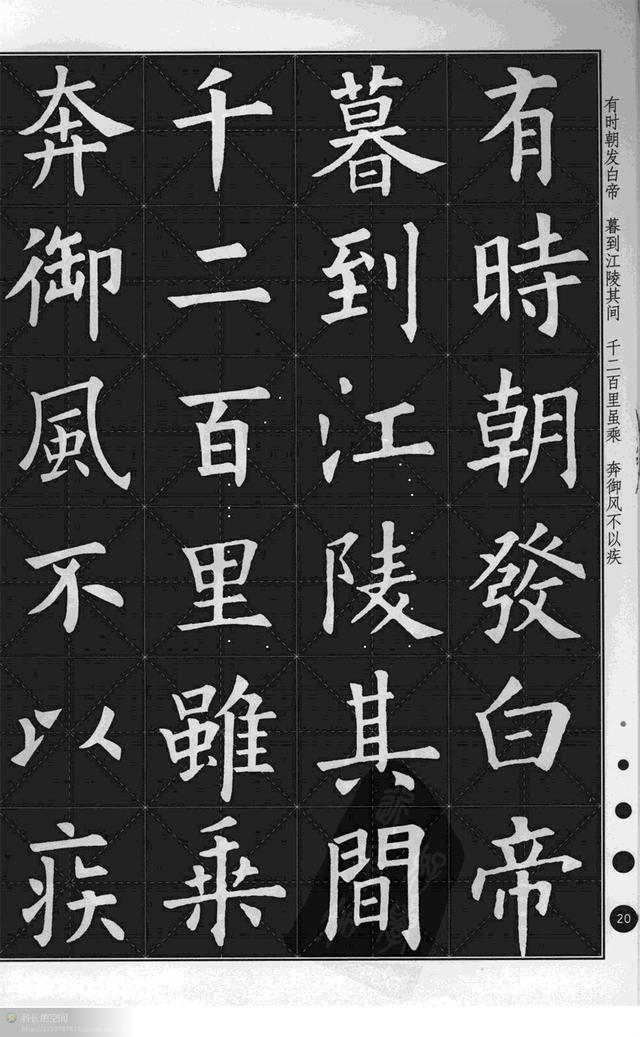 有時朝發白帝
暮到江陵其間
千二百里雖乘
奔御風不以疾
有时朝发白帝　暮到江陵其间　千二百里虽乘　奔御风不以疾
20
科长的空间